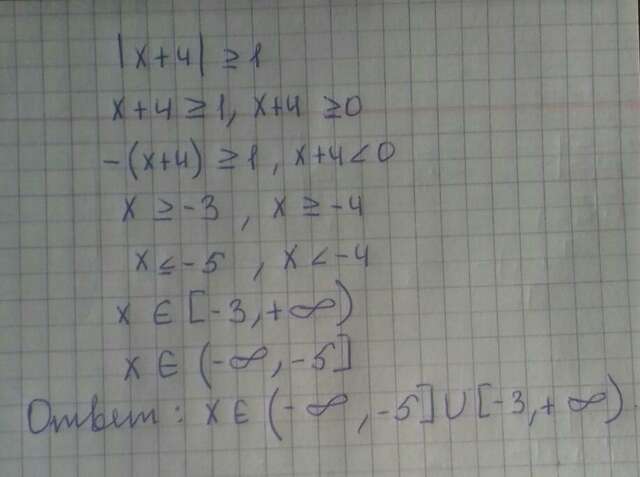 |x+4| ≥ 1
x+4 ≥ 1, x+4 ≥ 0
-(x+4) ≥ 1, x+4 < 0
x ≥ -3, x ≥ -4
x ≤ -5, x < -4
x ∈ [-3, +∞)
x ∈ (-∞, -5]
Ответ: x ∈ (-∞, -5] ∪ [-3, +∞).